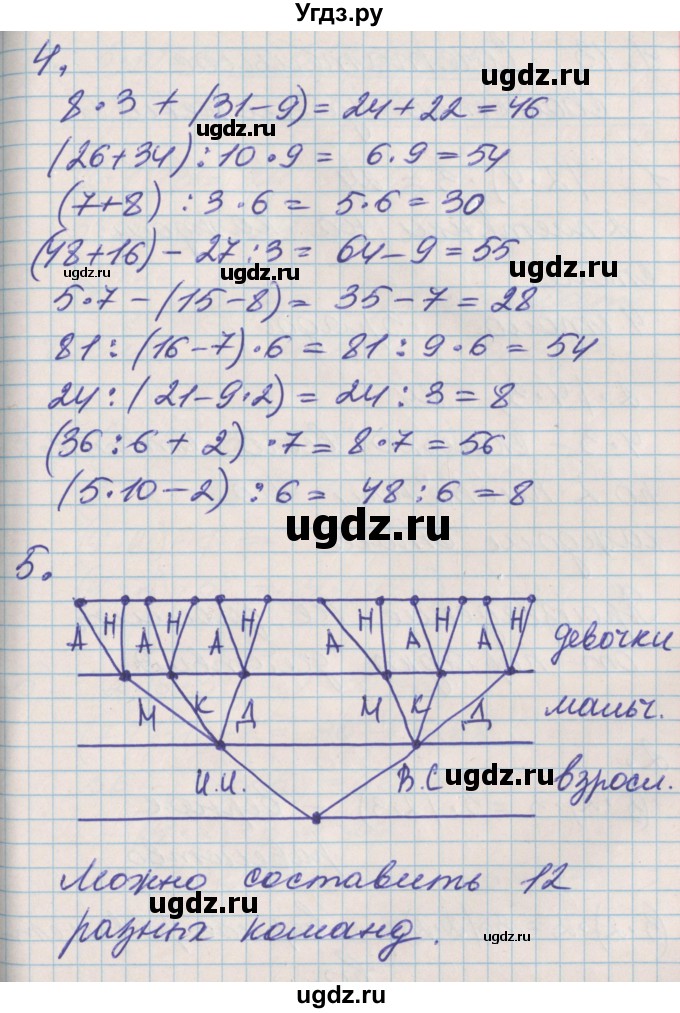 Угдз.ру
4.
ugdz.ru
8 · 3 + (31 - 9) = 24 + 22 = 46
ugdz.ru
(26 + 34) : 10 · 9 = 6 · 9 = 54
(7 + 8) : 3 · 6 = 5 · 6 = 30
(48 + 16) - 27 : 3 = 64 - 9 = 55
ugdz.ru ugdz.ru ugdz.ru
5 · 7 - (15 - 8) = 35 - 7 = 28
81 : (16 - 7) · 6 = 81 : 9 · 6 = 54
24 : (21 - 9 · 2) = 24 : 3 = 8
(36 : 6 + 2) · 7 = 8 · 7 = 56
(5 · 10 - 2) : 6 = 48 : 6 = 8
ugdz.ru
5.
А Н А Н А Н А Н А Н А Н девочки
М К Д М К Д мальч.
И.И. В.С взросл.
ugdz.ru
Можно составить 12
ugdz.ru
разных команд.
ugdz.ru
ugdz.ru